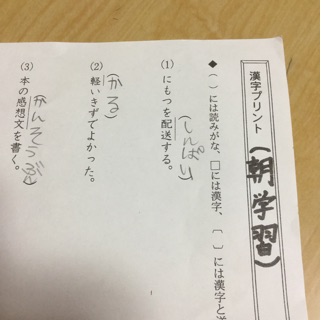 漢字プリント
(朝学習)
◆( )には読みがな、□には漢字、〔 〕には漢字と
(しんぱい)
(1) にもつを配送する。
(かる)
(2) 軽いきずでよかった。
(かんそうぶん)
(3) 本の感想文を書く。